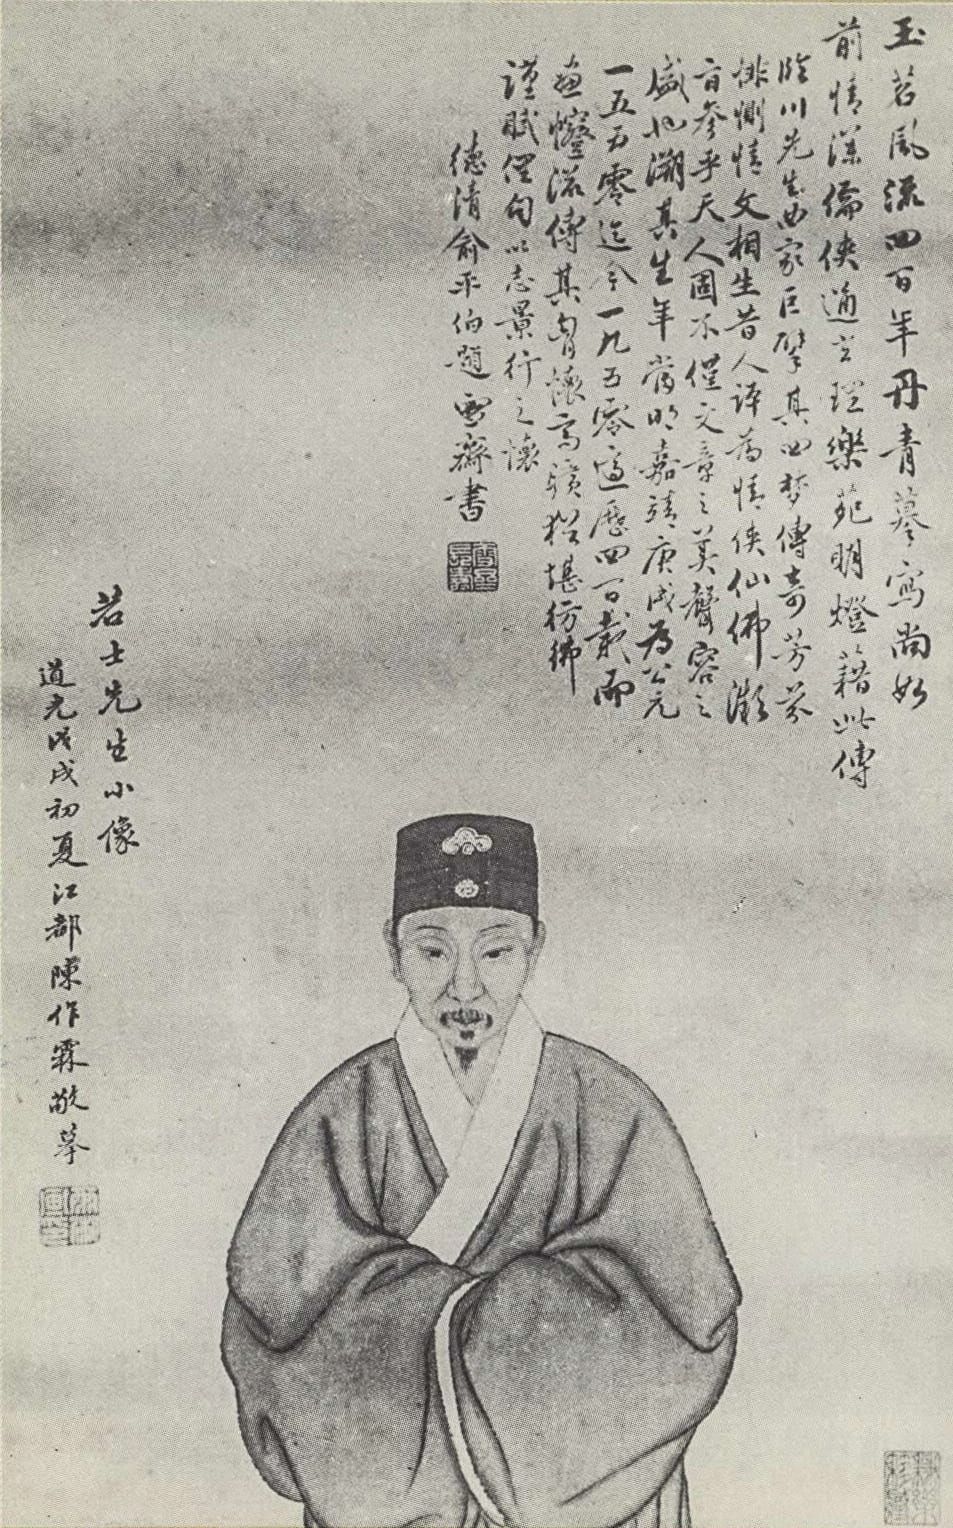 玉茗風流四百年丹青摹寫尚如
前情深倫俠通玄理樂苑明燈藉此傳
臨川先生曲家巨擘其四夢傳奇芳芬
悱惻情文相生昔人評為情俠仙佛
旨參乎天人固不僅文章之美聲容之
盛也溯其生年當明嘉靖庚戌為公元
一五五零迄今一九五零適歷四百載而
畫幨滋傳其胷懷高曠猶堪彷彿
謹賦俚句以志景行之懷
德清俞平伯題 雪齋書
若士先生小像
道光戊戌初夏江都陳作霖敬摹